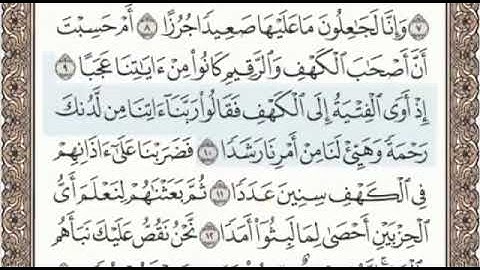 ٧ وَإِنَّا لَجَٰعِلُونَ مَا عَلَيْهَا صَعِيدًا جُرُزًا ٨ أَمْ حَسِبْتَ
أَنَّ أَصْحَٰبَ ٱلْكَهْفِ وَٱلرَّقِيمِ كَانُوا۟ مِنْ ءَايَٰتِنَا عَجَبًا ٩
إِذْ أَوَى ٱلْفِتْيَةُ إِلَى ٱلْكَهْفِ فَقَالُوا۟ رَبَّنَآ ءَاتِنَا مِن لَّدُنكَ
رَحْمَةً وَهَيِّئْ لَنَا مِنْ أَمْرِنَا رَشَدًا ١٠ فَضَرَبْنَا عَلَىٰٓ ءَاذَانِهِمْ
فِى ٱلْكَهْفِ سِنِينَ عَدَدًا ١١ ثُمَّ بَعَثْنَٰهُمْ لِنَعْلَمَ أَىُّ
ٱلْحِزْبَيْنِ أَحْصَىٰ لِمَا لَبِثُوٓا۟ أَمَدًا ١٢ نَّحْنُ نَقُصُّ عَلَيْكَ نَبَأَهُم